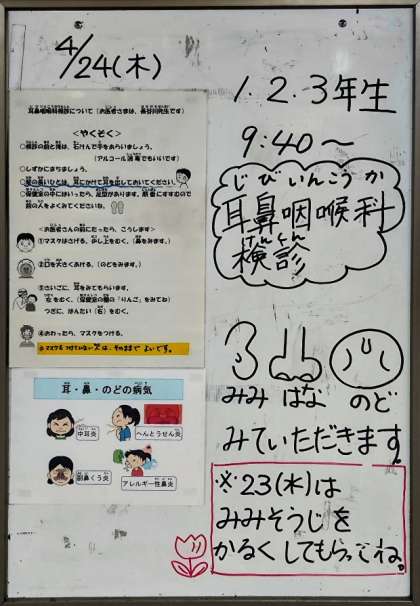 4/24(木)
1.2.3年生
9:40〜
じびいんこうか
耳鼻咽喉科
けんしん
検診
みみ はな のど
みていただきます。
※23(水)は
みみそうじを
かるくしてもらってね。
耳鼻咽喉科検診について（お医者さまは、長谷川先生です）
＜やくそく＞
○検診の前と後は、石けんで手をあらいましょう。
（アルコール消毒でもいいです）
○しずかにまちましょう。
○髪の長いひとは、耳にかけて耳を出しておいてください。
前の人をよくみてくださいね。
＜お医者さんの前にたったら、こうします＞
①マスクはさげる。少し上をむく。（鼻をみます。）
②口を大きくあける。（のどをみます。）
③さいごに、耳をみてもらいます。
右をむく。（保健室の棚の「りんご」をみてね）
つぎに、はんたい（右）をむく。
④おわったら、マスクをつける。
※マスクをつけていない人は、そのままでよいです。
耳・鼻・のどの病気
中耳炎
へんとうせん炎
副鼻くう炎
アレルギー性鼻炎